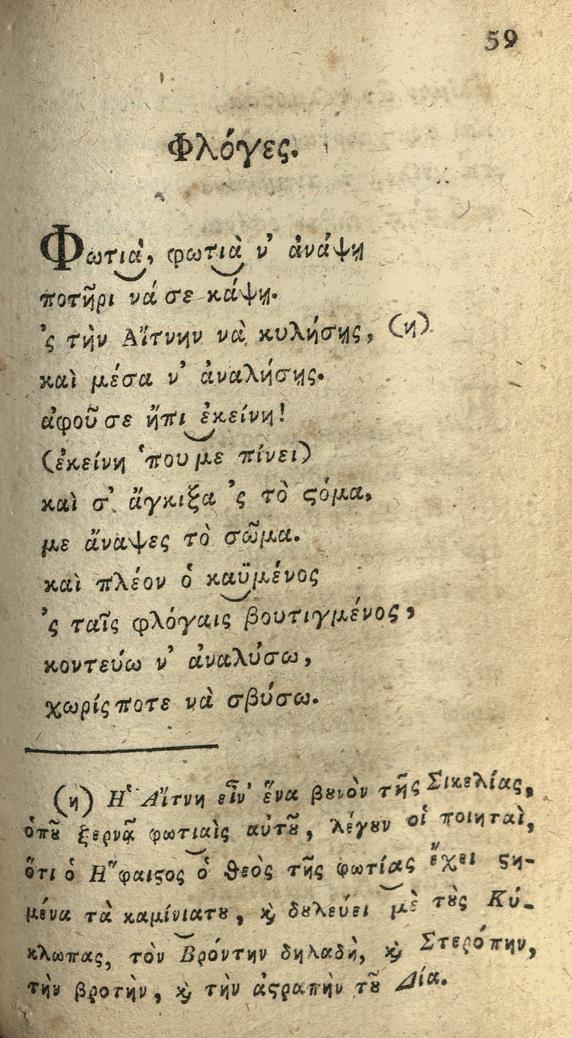 59
Φλόγες.
Φωτιὰ, φωτιὰ ν' ἀνάψῃ
ποτῆρι νά σε κάψῃ.
'ς τὴν Αἴτνην νὰ κυλήσῃς, (η)
καὶ μέσα ν' ἀναλήσῃς.
ἀφοῦ σε ἤπι ἐκείνη!
(ἐκείνη 'που με πίνει)
καὶ σ' ἄγκιξα 'ς τὸ ϛόμα,
με ἄναψες τὸ σῶμα.
καὶ πλέον ὁ καϋμένος
'ς ταῖς φλόγαις βουτιγμένος,
κοντεύω ν' ἀναλύσω,
χωρίς ποτε νὰ σβύσω.
(η) Η' Αἴτνη εἶν' ἕνα βȣνὸν τῆς Σικελίας,
ὁπȣ͂ ξερνᾷ φωτιαὶς αὐτȣ͂, λέγȣν οἱ ποιηταὶ,
ὅτι ὁ Η"φαιϛος ὁ θεὸς τῆς φωτίας ἔχει ϛη-
μένα τὰ καμίνιατȣ, ϗ̀ δȣλεύει μὲ τȣ̀ς Κύ-
κλωπας, τὸν Βρόντην δηλαδὴ, ϗ̀ Στερόπην,
τὴν βροτὴν, ϗ̀ τὴν ἀϛραπὴν τȣ͂ Δία.